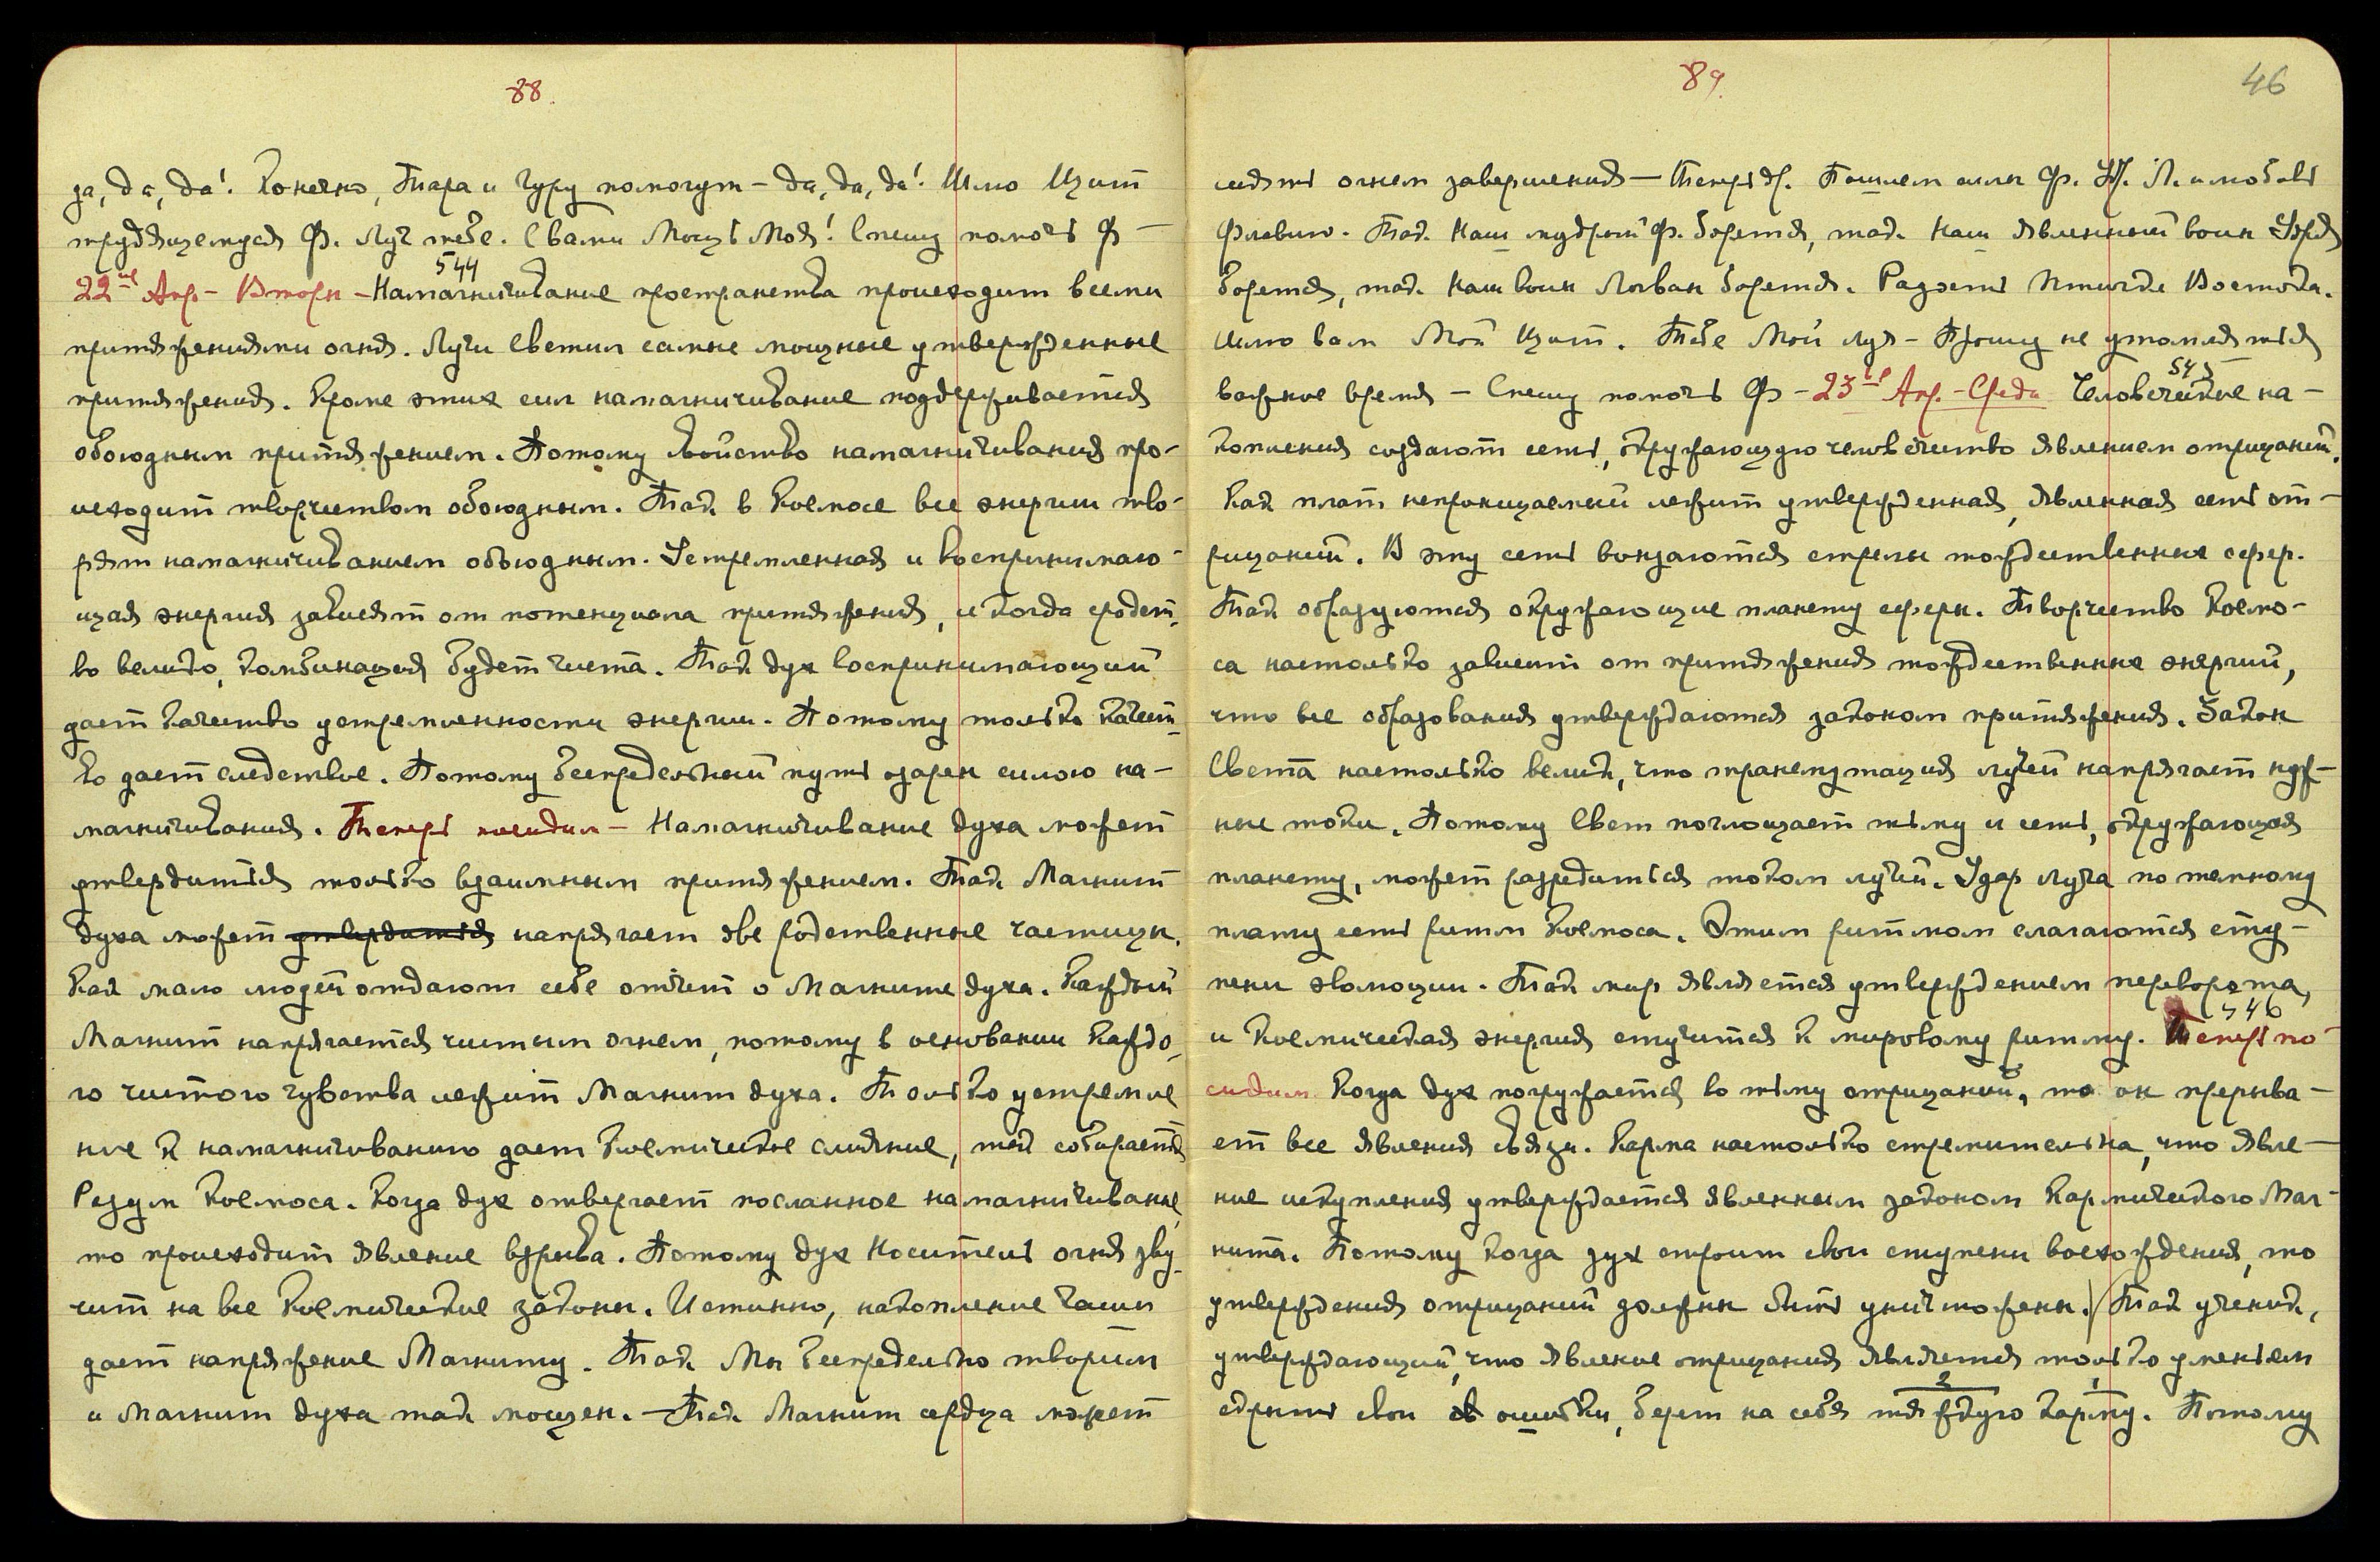 88.
да, да, да! Конечно, Тара и Гуру помогут – да, да, да! Шлю Щит
трудящемуся Ф. Луч тебе. С вами Мощь Моя! Спешу помочь Ф –
544
22-ое Апр – Вторн – Намагничивание пространства происходит всеми
притяжениями огня. Лучи Светил самые мощные утвержденные
притяжения. Кроме этих сил намагничивание поддерживается
обоюдным притяжением. Потому свойство намагничивания про-
исходит творчеством обоюдным. Так в Космосе все энергии тво-
рят намагничиванием обоюдным. Устремленная и воспринимаю-
щая энергия зависят от потенциала притяжения, и когда сродст-
во велико, комбинация будет чиста. Так дух воспринимающий
дает качество устремленности энергии. Потому только качест-
во дает следствие. Потому беспредельный путь озарен силою на-
магничивания. Теперь посидим – Намагничивание духа может
утвердиться только взаимным притяжением. Так Магнит
духа может утвердиться напрягает две родственные частицы.
Как мало людей отдают себе отчет о Магните духа. Каждый
Магнит напрягается чистым огнем, потому в основании каждо-
го чистого чувства лежит Магнит духа. Только устремле
ние к намагничиванию дает Космическое слияние, так собирается
Разум Космоса. Когда дух отвергает посланное намагничивание,
то происходит явление взрыва. Потому дух Носитель огня зву-
чит на все Космические законы. Истинно, накопление Чаши
дает напряжение Магниту. Так Мы беспредельно творим
и Магнит духа так мощен. – Так Магнит сердца может
89.
46
сиять огнем завершения – Теперь др. Пошлем силы Ф. Л. и любовь
Флавию. Так Наш мудрый Ф. борется, так Наш явленный воин Удрая
борется, так наш воин Логван борется. Радость Птичке Востока.
Шлю вам Мой Щит. Тебе Мой луч – Прошу не утомляться
важное время – Спешу помочь Ф – 23-ье Апр. – Среда Человеческие на-
545
копления создают сеть, окружающую человечество явлением отрицаний.
Как плат непроницаемый лежит утвержденная, явленная сеть от-
рицаний. В эту сеть вонзаются стрелы тождественных сфер.
Так образуются окружающие планету сферы. Творчество Космо-
са настолько зависит от притяжения тождественных энергий,
что все образования утверждаются законом притяжения. Закон
Света настолько велик, что трансмутация лучей напрягает нуж-
ные токи. Потому Свет поглощает тьму и сеть, окружающая
планету, может разредиться током лучей. Удар луча по темному
плату есть ритм Космоса. Этим ритмом слагаются сту-
пени эволюции. Так мир является утверждением переворота,
и Космическая энергия стучится к мировому ритму. Теперь по-
546
сидим Когда дух погружается во тьму отрицаний, то он прерыва-
ет все явления связи. Карма настолько стремительна, что явле-
ние искупления утверждается явленным законом Кармического Маг-
нита. Потому когда дух строит свои ступени восхождения, то
утверждения отрицаний должны быть уничтожены. / Так ученик,
утверждающий, что явление отрицания является только уменьем
скрыть свои ошибки, берет на себя тяжкую карму. Потому